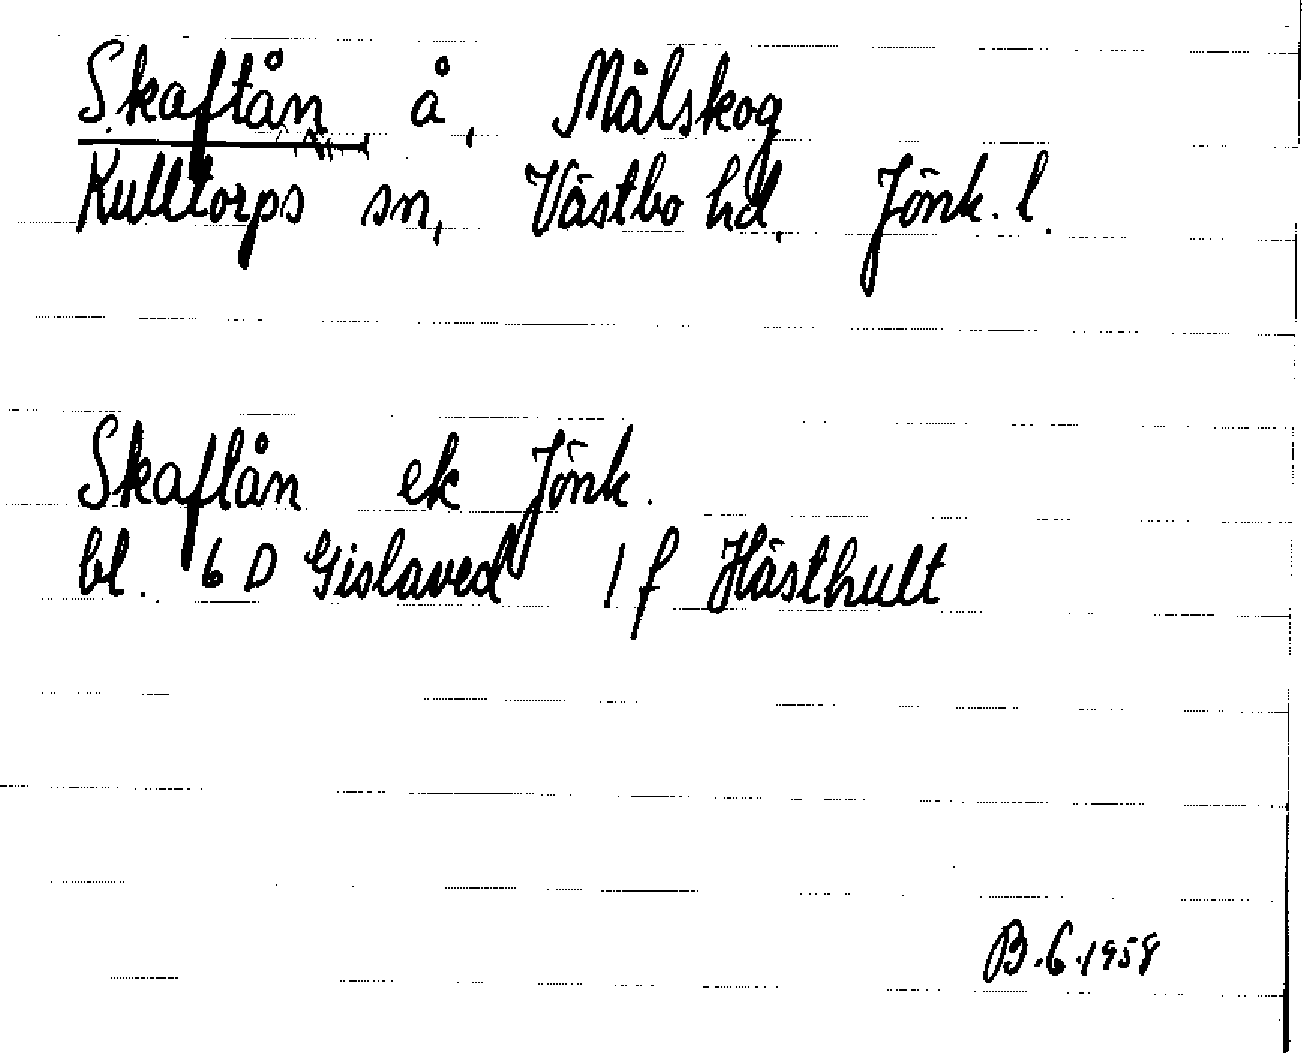 Skaftån å, Målskog
Kulltorps sn, Västbo hd, Jönk. l.
Skaftån ek Jönk.
bl. 6 D Gislaved 1 f Hästhult
B.G. 1958